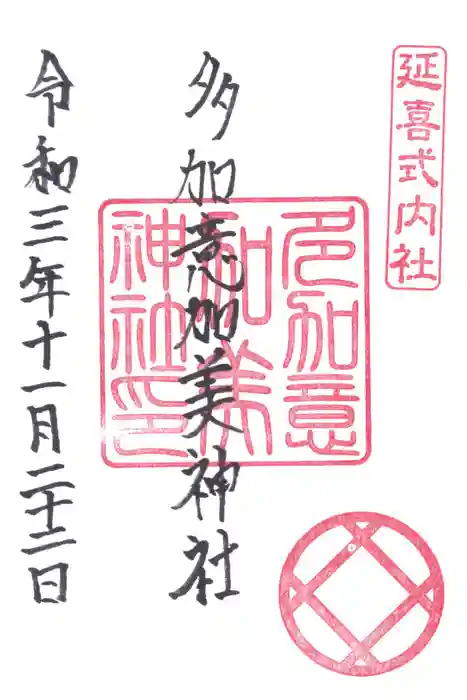 延喜式内社
多加意加美神社
多加意
加美
神社印
令和三年十一月二十二日